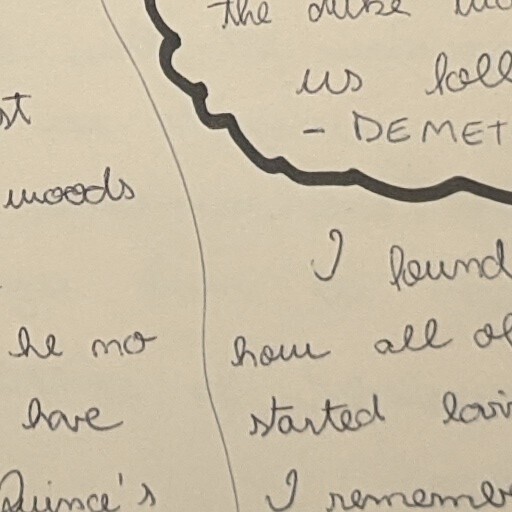 st
woods
he no
have
Quince's
the duke
us foll
- DEMET
I found
how all of
started lovi
I remembe